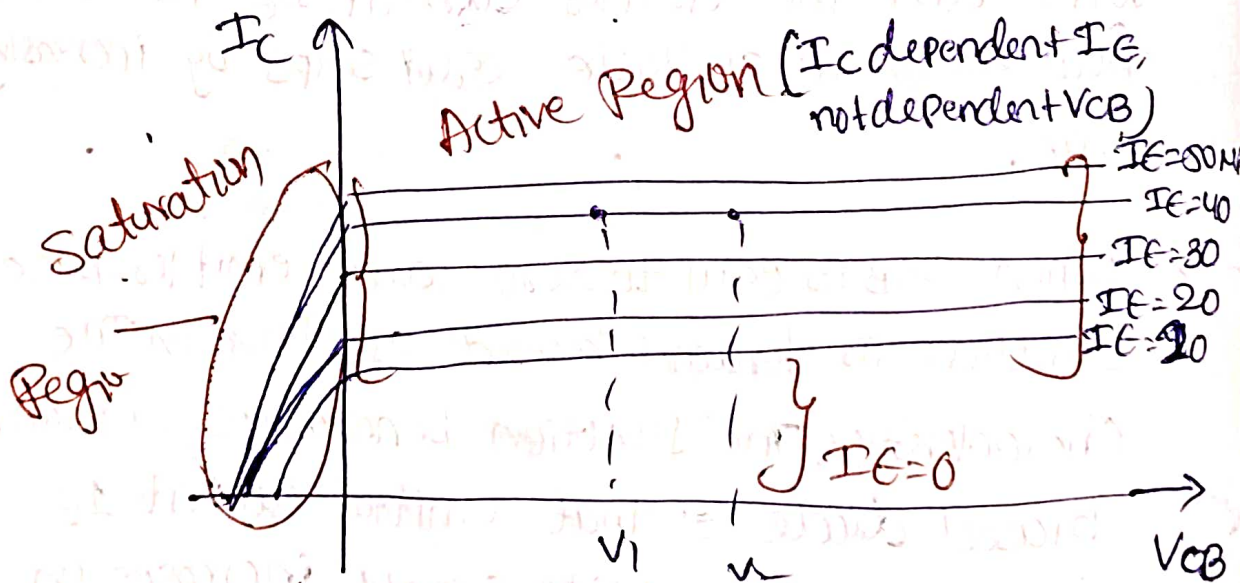 Ic
Active Region (Ic dependent IE,
not dependent VCB)
Saturation
Regio
IE=50
IE=40
IE=30
IE=20
IE=10
IE=0
V1
VCB